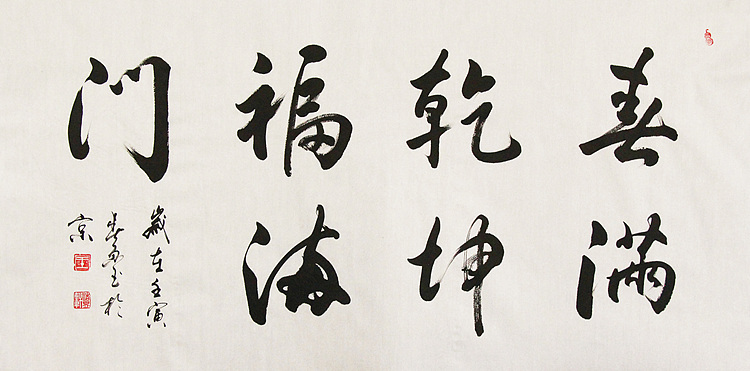 春满
乾坤
福满
门
歲在壬寅
书於
京